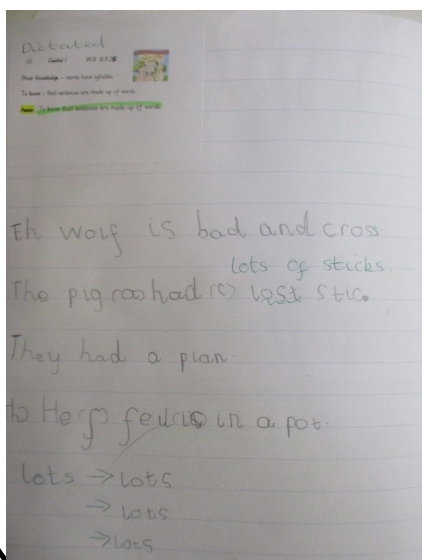 Dictated
Prior Knowledge - words have syllables
To know - that sentences are made up of words
To know that sentences are made up of words
Eh wolf is bad and cross.
lots of sticks.
The pig had (s) lost stic.
They had a plan.
in a pot.
lots → lots
→ lots
→ lots